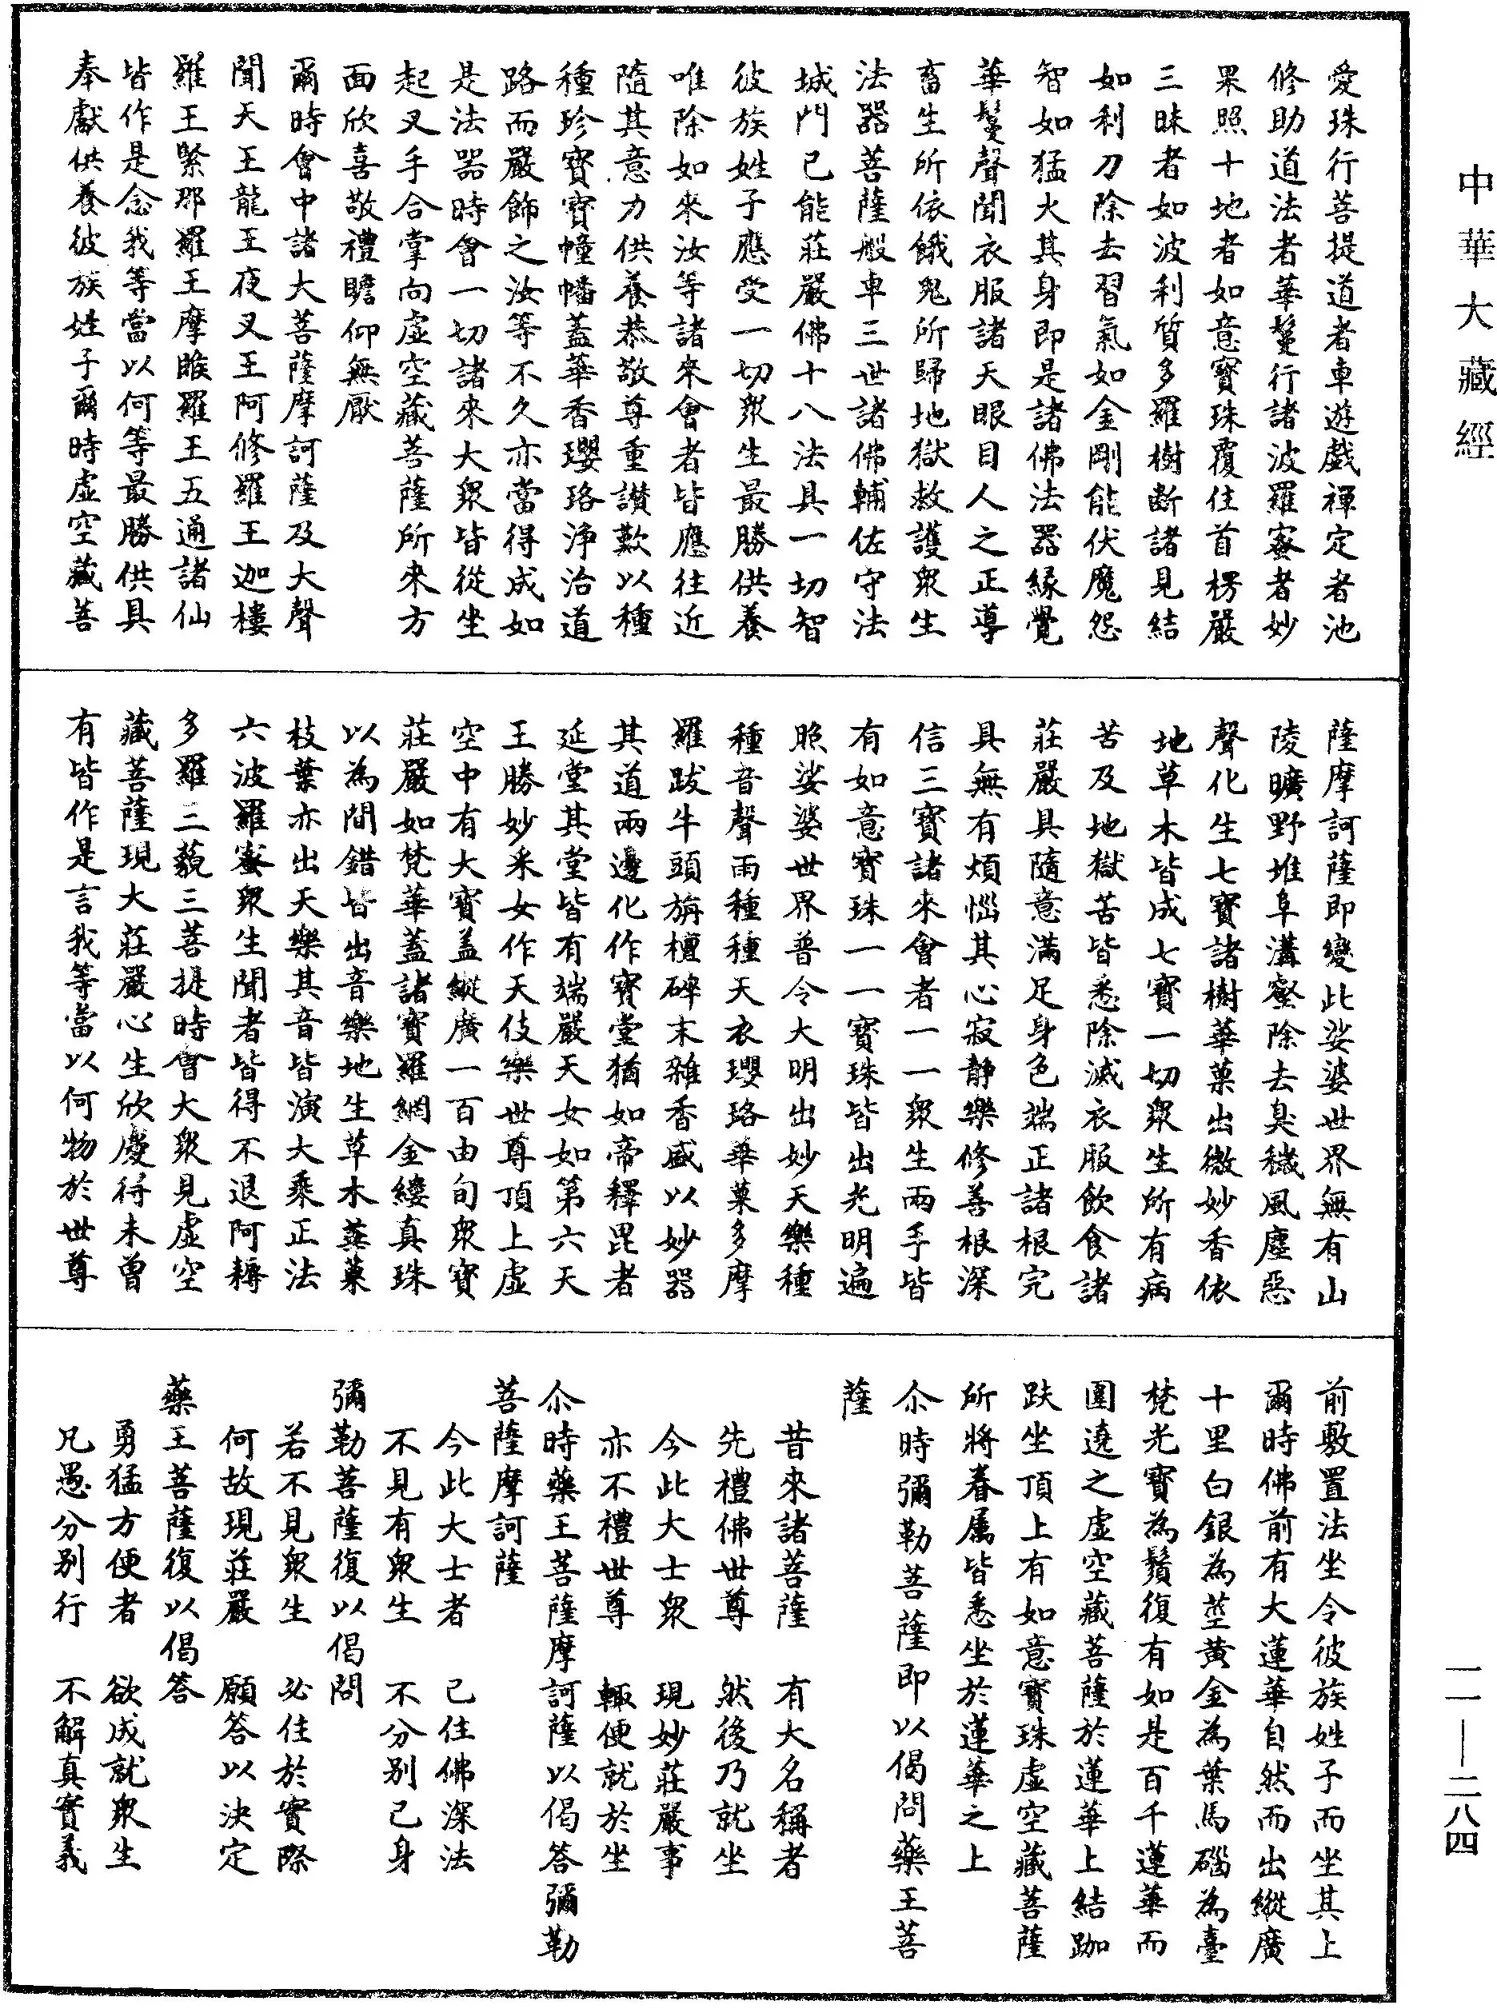 中華大藏經
愛珠行菩提道者車遊戲禪定者池
修助道法者華鬘行諸波羅蜜者妙
果照十地者如意寶珠覆住首楞嚴
三昧者如波利質多羅樹斷諸見結
如利刀除去習氣如金剛能伏魔怨
智如猛火其身即是諸佛法器緣覺
華鬘聲聞衣服諸天眼目人之正導
畜生所依餓鬼所歸地獄救護眾生
法器菩薩般車三世諸佛輔佐守法
城門已能莊嚴佛十八法具一切智
彼族姓子應受一切眾生最勝供養
唯除如來汝等諸來會者皆應往近
隨其意力供養恭敬尊重讚歎以種
種珍寶寶幢幡蓋華香瓔珞淨治道
路而嚴飾之汝等不久亦當得成如
是法器時會一切諸來大眾皆從坐
起叉手合掌向虛空藏菩薩所來方
面欣喜敬禮瞻仰無厭
爾時會中諸大菩薩摩訶薩及大聲
聞天王龍王夜叉王阿修羅王迦樓
羅王緊那羅王摩睺羅王五通諸仙
皆作是念我等當以何等最勝供具
奉獻供養彼族姓子爾時虛空藏菩
薩摩訶薩即變此娑婆世界無有山
陵曠野堆阜溝壑除去臭穢風塵惡
聲化生七寶諸樹華菓出微妙香依
地草木皆成七寶一切眾生所有病
苦及地獄苦皆悉除滅衣服飲食諸
莊嚴具隨意滿足身色端正諸根完
具無有煩惱其心寂靜樂修善根深
信三寶諸來會者一一眾生兩手皆
有如意寶珠一一寶珠皆出光明遍
照娑婆世界普令大明出妙天樂種
種音聲雨種種天衣瓔珞華菓多摩
羅跋牛頭旃檀碎末雜香盛以妙器
其道兩邊化作寶堂猶如帝釋毘者
延堂其堂皆有端嚴天女如第六天
王勝妙釆女作天伎樂世尊頂上虛
空中有大寶蓋縱廣一百由旬眾寶
莊嚴如梵華蓋諸寶羅網金縷真珠
以為間錯皆出音樂地生草木華菓
枝葉亦出天樂其音皆演大乘正法
六波羅蜜眾生聞者皆得不退阿耨
多羅三藐三菩提時會大眾見虛空
藏菩薩現大莊嚴心生欣慶得未曾
有皆作是言我等當以何物於世尊
前敷置法坐令彼族姓子而坐其上
爾時佛前有大蓮華自然而出縱廣
十里白銀為莖黃金為葉馬碯為臺
梵光寶為鬚復有如是百千蓮華而
圍遶之虛空藏菩薩於蓮華上結跏
趺坐頂上有如意寶珠虛空藏菩薩
所將眷屬皆悉坐於蓮華之上
尒時彌勒菩薩即以偈問藥王菩
薩
昔來諸菩薩　有大名稱者
先禮佛世尊　然後乃就坐
今此大士眾　現妙莊嚴事
亦不禮世尊　輒便就於坐
尒時藥王菩薩摩訶薩以偈答彌勒
菩薩摩訶薩
今此大士者　已住佛深法
不見有眾生　不分別己身
彌勒菩薩復以偈問
若不見眾生　必住於實際
何故現莊嚴　願答以決定
藥王菩薩復以偈答
勇猛方便者　欲成就眾生
凡愚分別行　不解真實義
一一—二八四